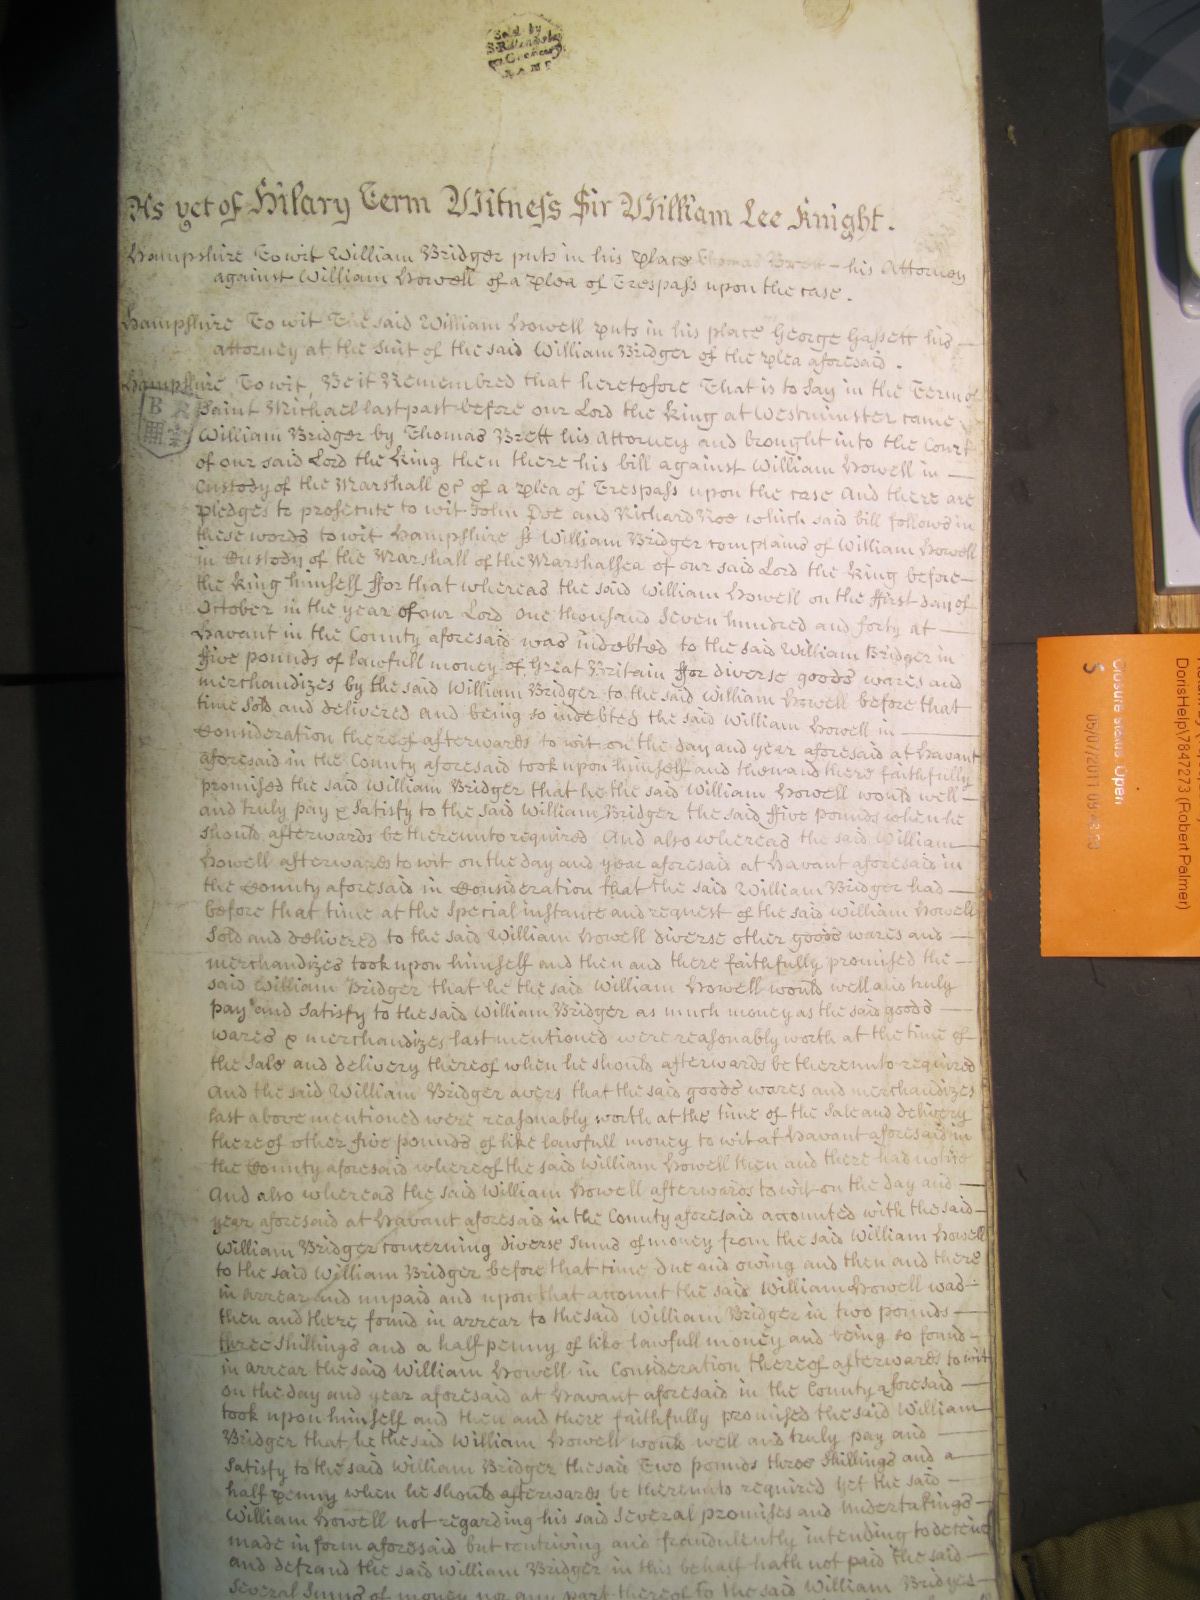 Sold by
As yet of Hilary Term Witness Sir William Lee Knight.
Hampshire To wit William Bridger puts in his place Thomas Brett his Attorney
against William Howell of a plea of Trespass upon the case.
Hampshire To wit The said William Howell puts in his place George Gassett his
attorney at the suit of the said William Bridger of the plea aforesaid.
Hampshire To wit, Be it Remembred that heretofore That is to say in the Term of
Saint Michael last past before our Lord the King at Westminster came
William Bridger by Thomas Brett his Attorney and brought into the Court
of our said Lord the King then there his bill against William Howell in
Custody of the Marshall &c of a plea of Trespass upon the case And there are
pledges to prosecute to wit John Doe and Richard Roe which said bill follows in
these words to wit Hampshire ss William Bridger complains of William Howell
in Custody of the Marshall of the Marshalsea of our said Lord the King before
the King himself ffor that whereas the said William Howell on the ffirst day of
October in the year of our Lord One thousand Seven hundred and forty at
Havant in the County aforesaid was indebted to the said William Bridger in
ffive pounds of lawfull money of Great Britain ffor diverse goods wares and
merchandizes by the said William Bridger to the said William Howell before that
time sold and delivered and being so indebted the said William Howell in
Consideration thereof afterwards to wit on the day and year aforesaid at Havant
aforesaid in the County aforesaid took upon himself and then and there faithfully
promised the said William Bridger that he the said William Howell would well
and truly pay & satisfy to the said William Bridger the said ffive pounds when he
should afterwards be thereunto required And also whereas the said William
Howell afterwards to wit on the day and year aforesaid at Havant aforesaid in
the County aforesaid in Consideration that the said William Bridger had
before that time at the special instance and request of the said William Howell
sold and delivered to the said William Howell diverse other goods wares and
merchandizes took upon himself and then and there faithfully promised the
said William Bridger that he the said William Howell would well and truly
pay and satisfy to the said William Bridger as much money as the said goods
wares & merchandizes last mentioned were reasonably worth at the time of
the sale and delivery thereof when he should afterwards be thereunto required
And the said William Bridger avers that the said goods wares and merchandizes
last above mentioned were reasonably worth at the time of the sale and delivery
thereof other five pounds of like lawfull money to wit at Havant aforesaid in
the County aforesaid whereof the said William Howell then and there had notice
And also whereas the said William Howell afterwards to wit on the day and
year aforesaid at Havant aforesaid in the County aforesaid accounted with the said
William Bridger concerning diverse sums of money from the said William Howell
to the said William Bridger before that time due and owing and then and there
in arrear and unpaid and upon that account the said William Howell was
then and there found in arrear to the said William Bridger in two pounds
three shillings and a halfpenny of like lawfull money and being so found
in arrear the said William Howell in Consideration thereof afterwards to wit
on the day and year aforesaid at Havant aforesaid in the County aforesaid
took upon himself and then and there faithfully promised the said William
Bridger that he the said William Howell would well and truly pay and
satisfy to the said William Bridger the said Two pounds three shillings and a
half penny when he should afterwards be thereunto required Yet the said
William Howell not regarding his said several promises and undertakings
made in form aforesaid but contriving and fraudulently intending to deceive
and defraud the said William Bridger in this behalf hath not paid the said
several sums of money nor any part thereof to the said William Bridger
Closure status: Open
S 05/07/2011 09:43:23
DorisHelp\7847273 (Robert Palmer)